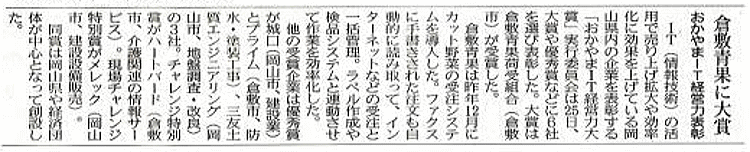 倉敷青果に大賞
おかやまIT経営力表彰
IT(情報技術)の活
用で売り上げ拡大や効率
化に効果を上げている岡
山県内の企業を表彰する
「おかやまIT経営力大
賞」実行委員会は25日、
大賞や優秀賞などに6社
を選び表彰した。大賞は
倉敷青果荷受組合(倉敷
市)が受賞した。
倉敷青果は昨年12月に
カット野菜の受注システ
ムを導入した。ファクス
に手書きされた注文も自
動的に読み取って、イン
ターネットなどの受注と
一括管理。ラベル作成や
検品システムと連動させ
て作業を効率化した。
他の受賞企業は優秀賞
が城口(岡山市、建設業)
とプライム(倉敷市、防
水・塗装工事)、三友土
質エンジニアリング(岡
山市、地盤調査・改良)
の3社。チャレンジ特別
賞がハートバード(倉敷
市、介護関連の情報サー
ビス)。現場チャレンジ
特別賞がメレック(岡山
市、建設設備販売)。
同賞は岡山県や経済団
体が中心となって創設し